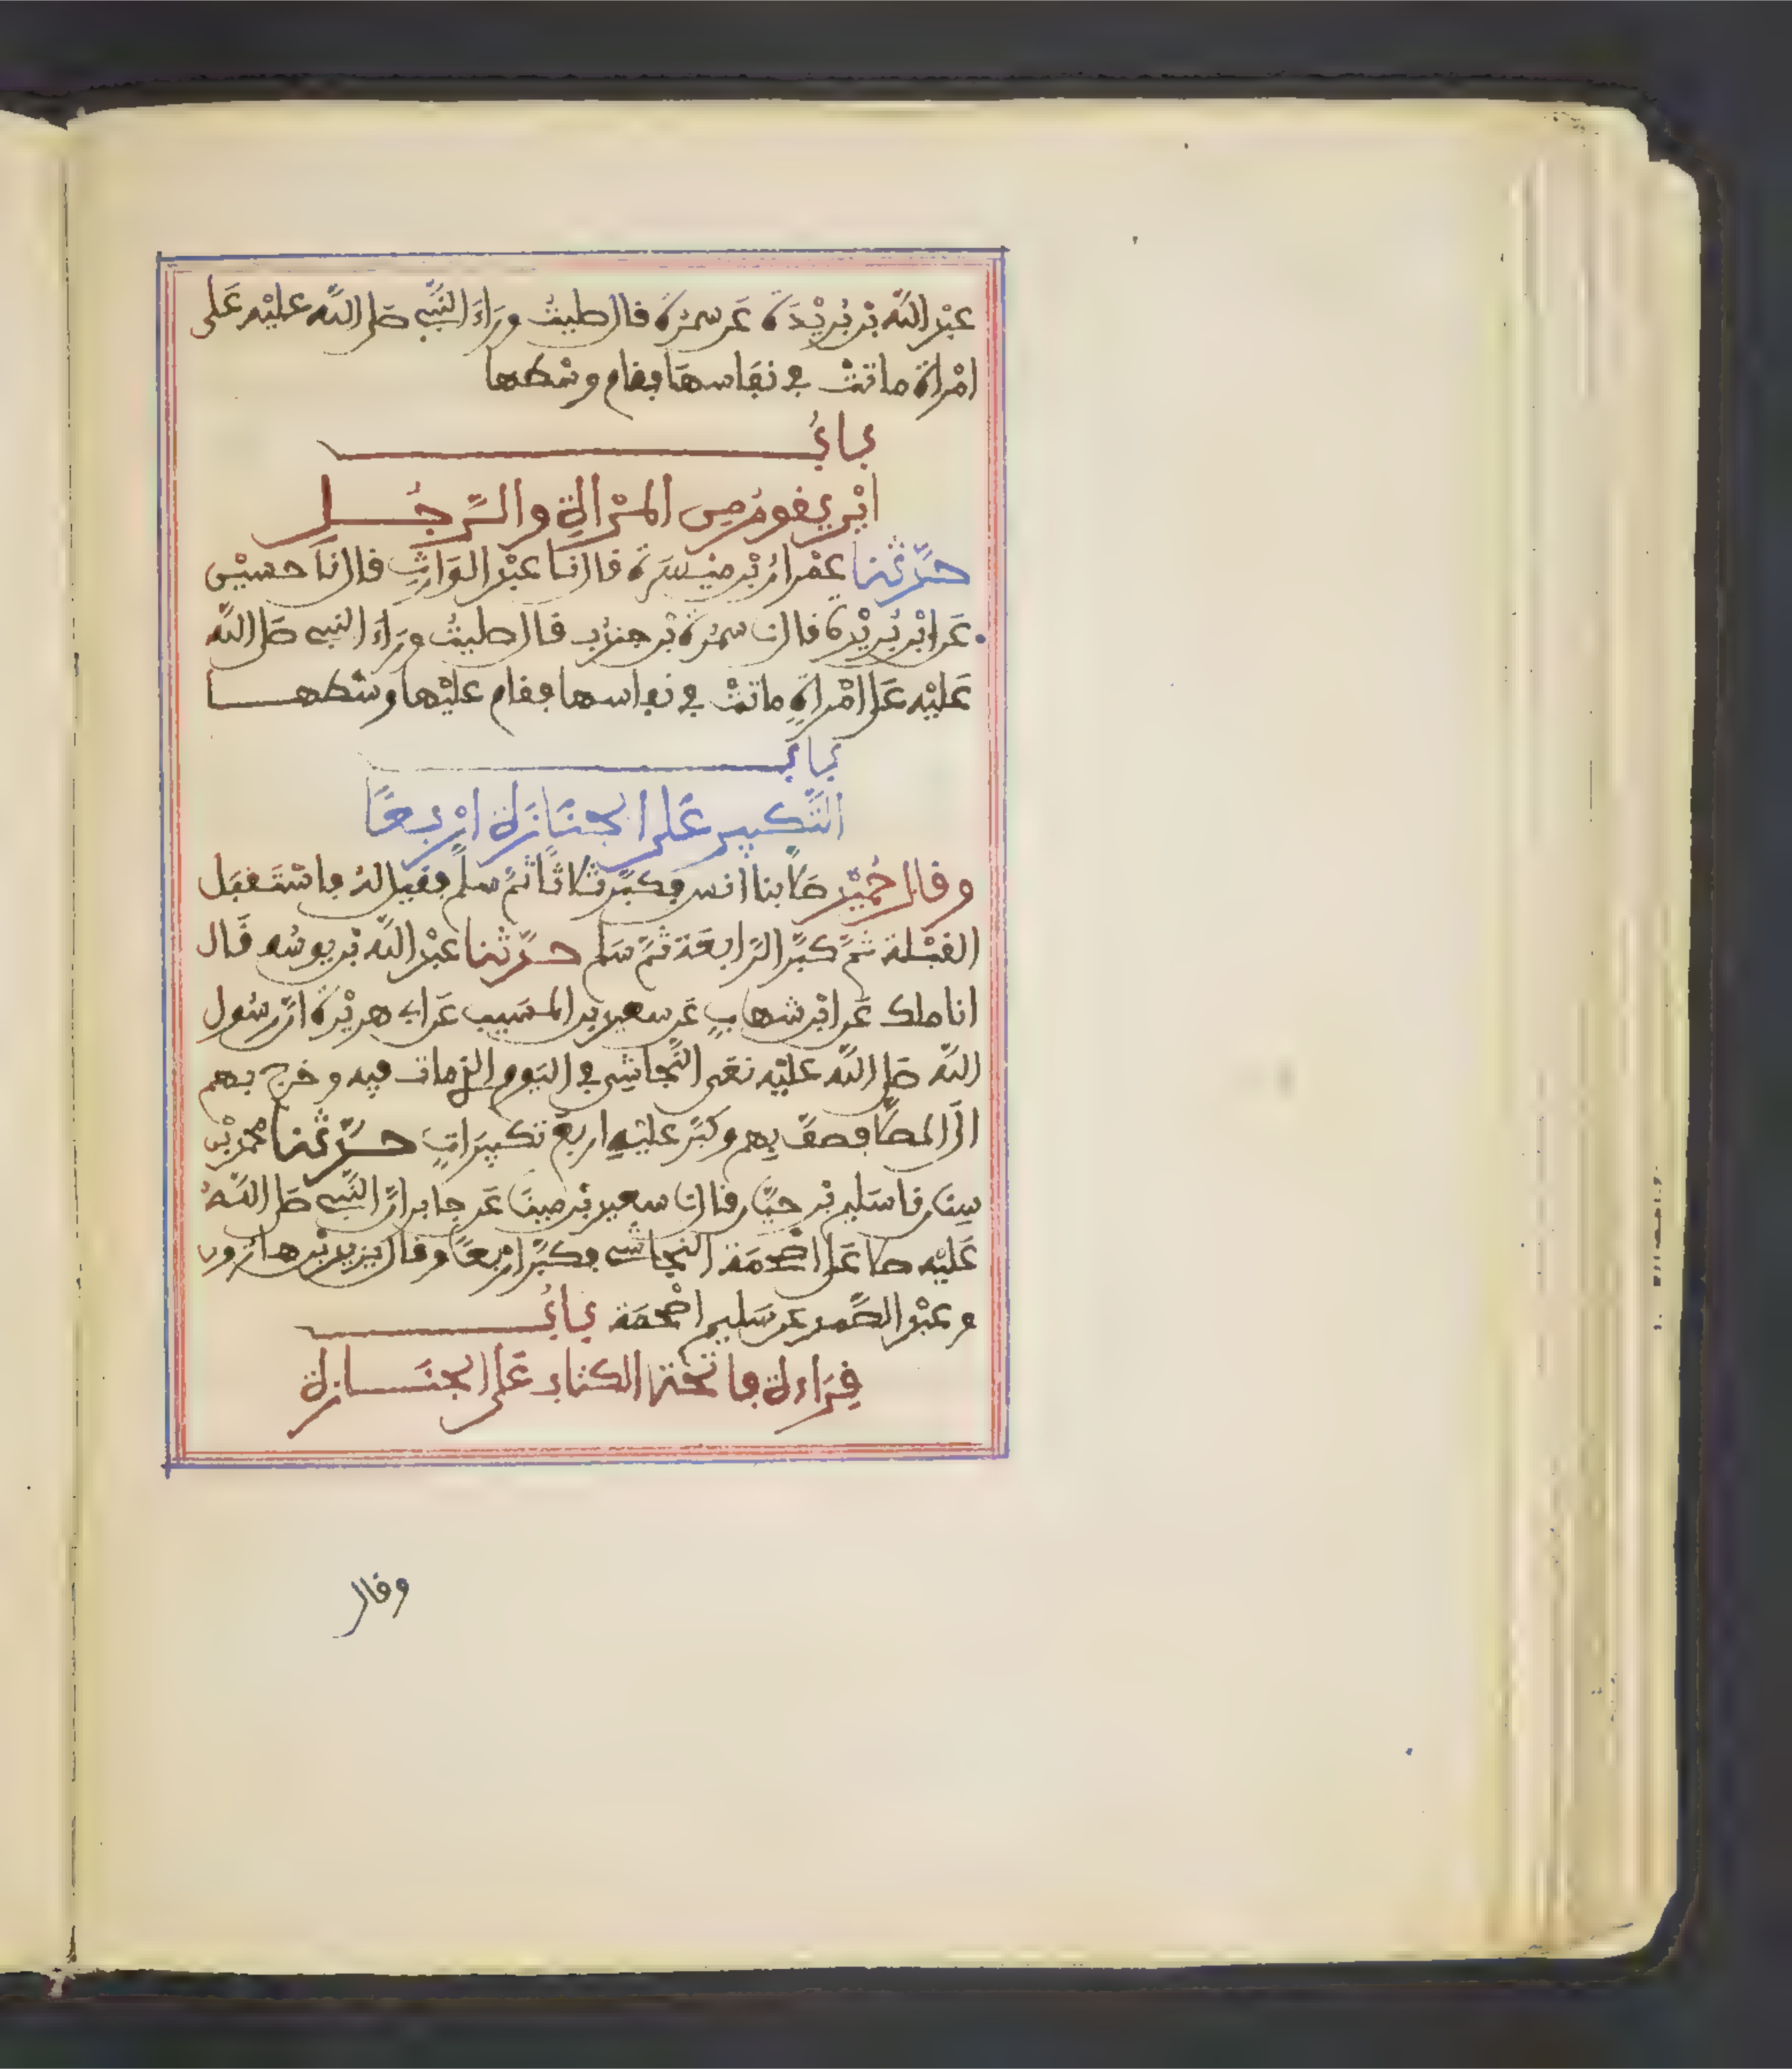 عبد الله بن بُرَيْدَة عَن سمرة قال صليتُ وَرَاءَ النَّبِي صلى الله عليْه عَلى
امْرَأة ماتتْ في نفَاسهَا فقام وسْطها
بابُ
ايْن يقومُ من المرْأةِ والرَّجُل
حدَّثنا عمْرانُ بْن ميْسَرَة قال نَا عبْد الوَارِثِ قال نَا حسيْن
عَن ابْن بُرَيْدة قال نا سمُرَة بْن جندُب قال صليتُ وَرَاءَ النبي صَلى اللَّه
عَليْه عَلى امْرَأةٍ ماتتْ في نفاسها فقام عليْها وسْطها
بابُ
التَّكبيرِ عَلى الجنَازَة ارْبعًا
وقال حُمَيْد صَلَّى بنا انس فكبَّر ثلاثًا ثمَّ سلم فقيل لهُ فاسْتَقبَل
القبْلة ثمَّ كبَّر الرَّابعَة ثمَّ سَلم حدَّثنا عبْد اللَّه بْن يوسُف قَال
انا ملك عَن ابْن شهابٍ عَن سعيد بن المسَيب عَن ابي هريْرَة انَّ رسُول
اللَّه صَلى اللَّه عليْه نعَى النَّجاشِي في اليَوم الذي مات فيه وخرج بهم
الَى المصلَّى فصفَّ بِهم وكبَّر عليْهِ اربعَ تكبيرَاتٍ حدَّثنا محمد بْن
سِنَان قا سَليم بْن حيَّان قال نا سعيد بْن مينَا عَن جابر انَّ النَّبي صَلى اللَّهُ
عَليْه صلى عَلى اصْحمَة النجاشي فكبَّر ارْبعًا وقال يزيد بْن هارُون
وعبْد الصَّمد عن سَليم اصْحمَة بابُ
قِرَاءة فاتحَة الكتاب عَلى الجنَازة
وقال